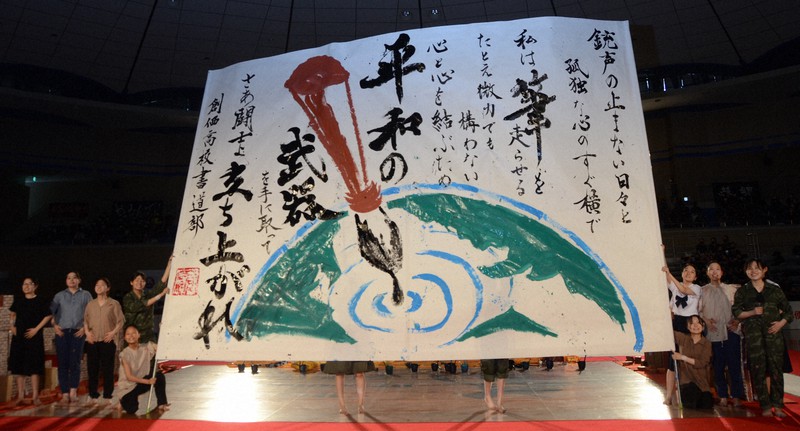 銃声の止まない日々と
孤独な心のすぐ横で
私は筆を走らせる
たとえ微力でも
構わない
心と心を結ぶため
平和の
武器
を手に取って
さあ闘士よ立ち上がれ
創価高校書道部